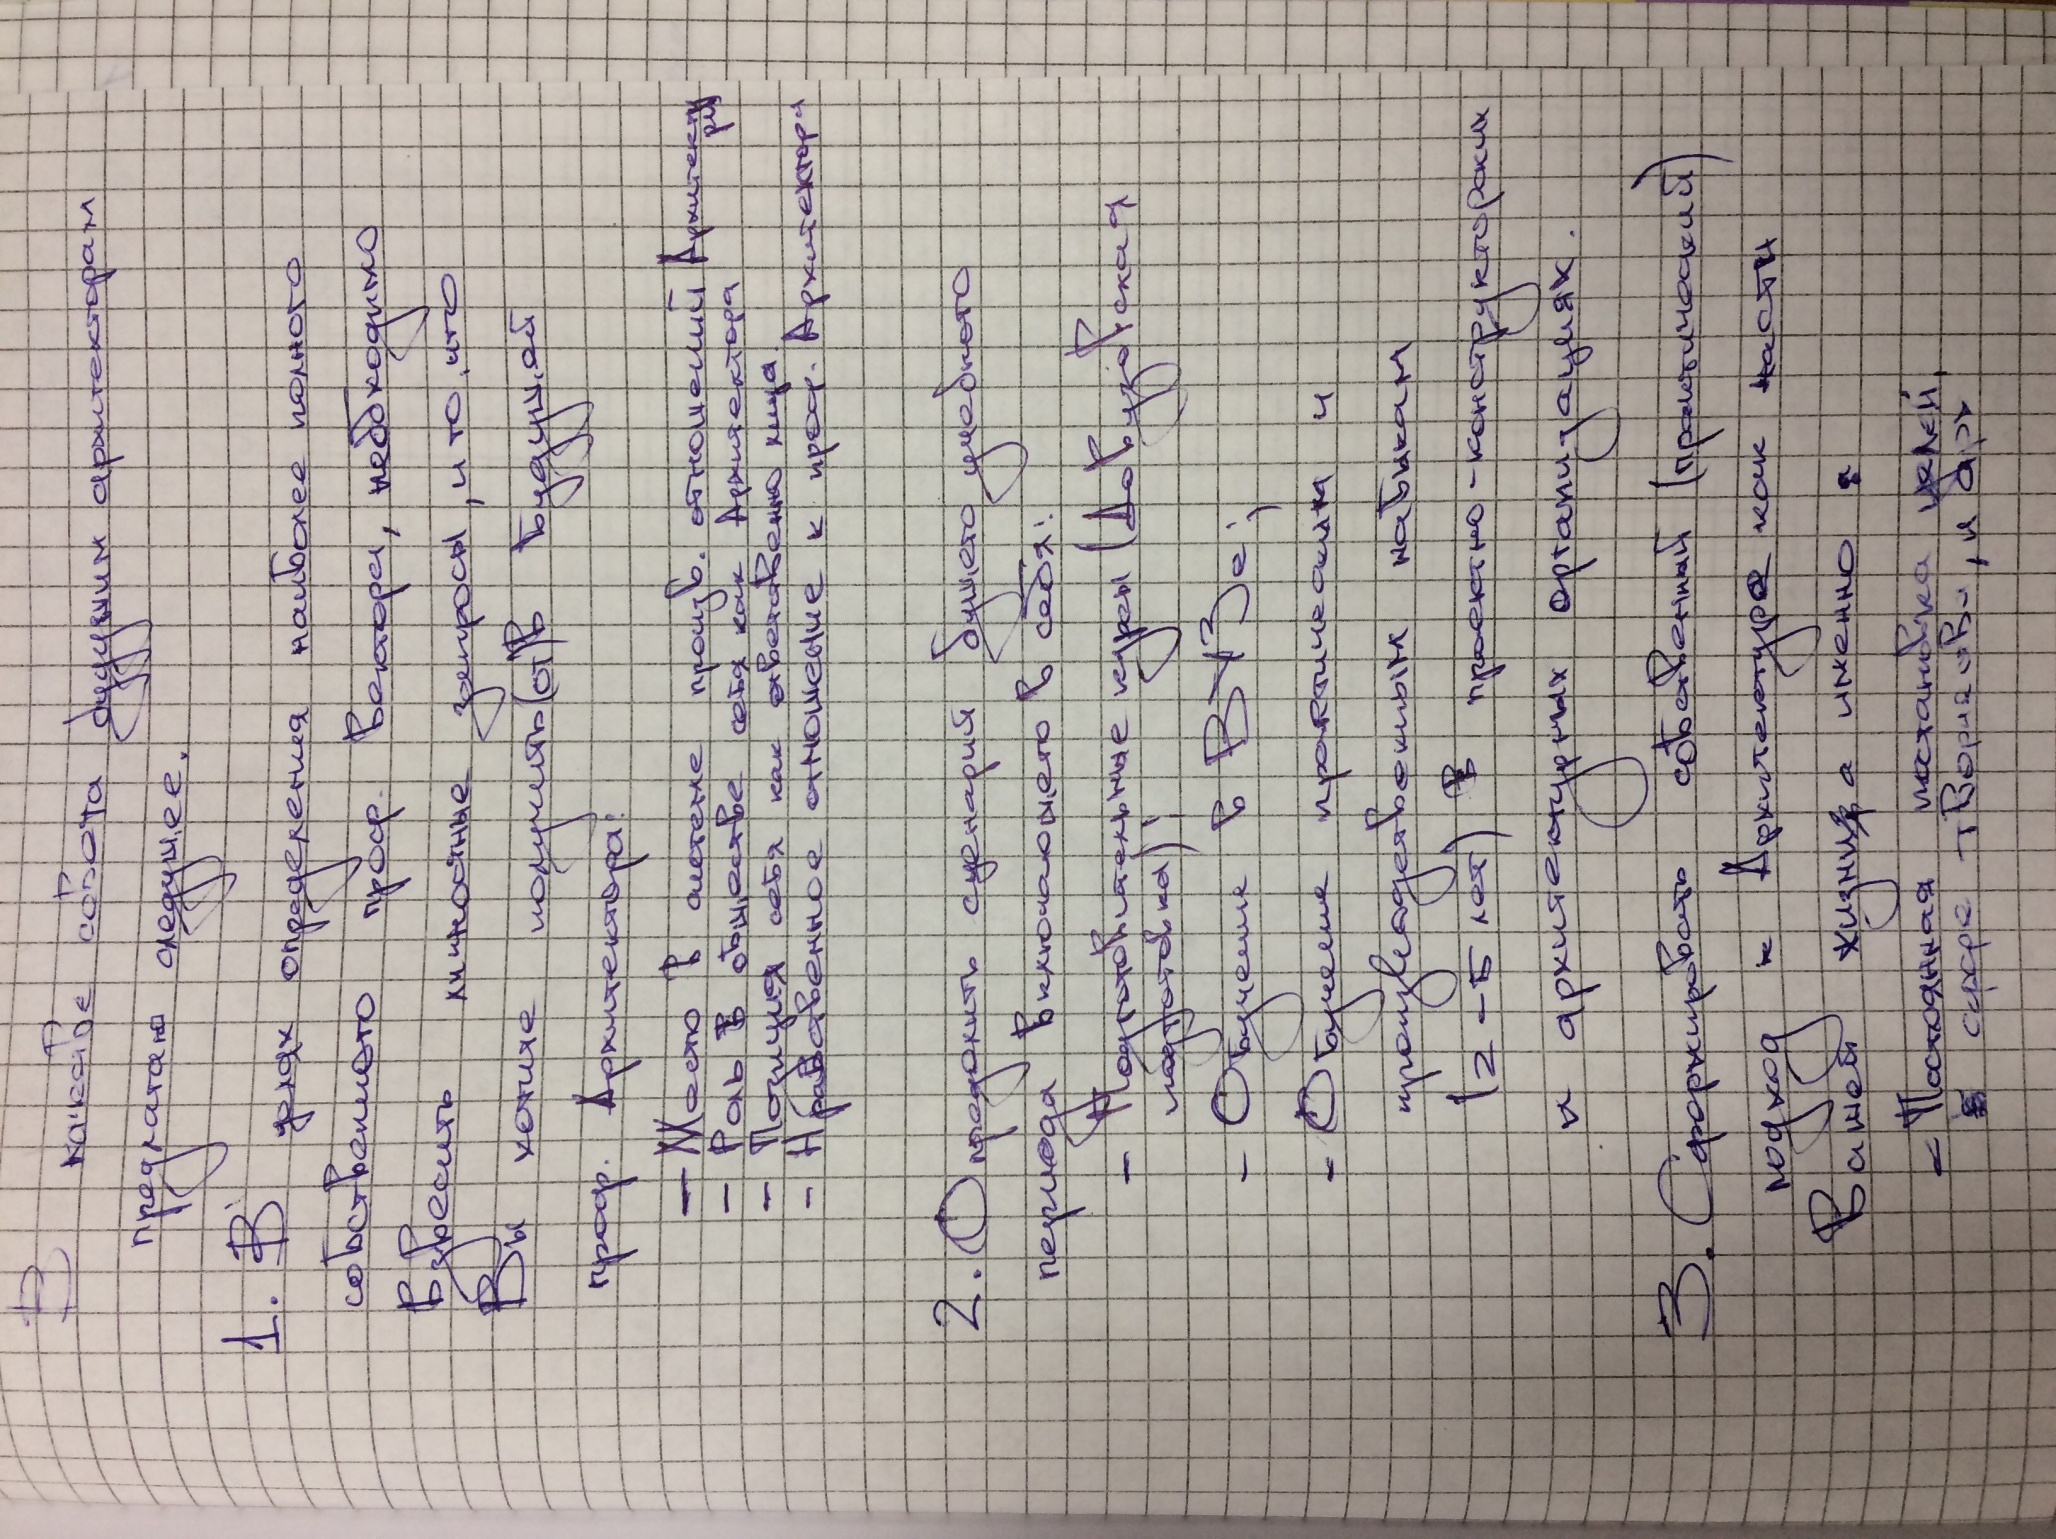 В качестве совета будущим архитекторам
предлагаю следущее.
1. В целях определения наиболее полного
собственного проф. вектора, необходимо
взвесить личностные запросы, и то, что
Вы хотите получить (от) в будущей
проф. Архитектора:
- Место в системе произв. отношений Архитектуры
- Роль в обществе себя как Архитектора
- Позиция себя как ответственно лица
- Нравственное отношение к проф. Архитектора
2. Определить сценарий будущего учебного
периода включающего в себя:
- Подготовительные курсы (Довузовская
подготовка);
- Обучение в ВУЗе;
- Обучение практическим и
производственным навыкам
(2-5 лет) в проектно-конструкторских
и архитектурных организациях.
3. Сформировать собственный (практический)
подход к Архитектуре как части
Вашей жизни, а именно:
- Постоянная постановка целей,
в сфере творчества, и арх